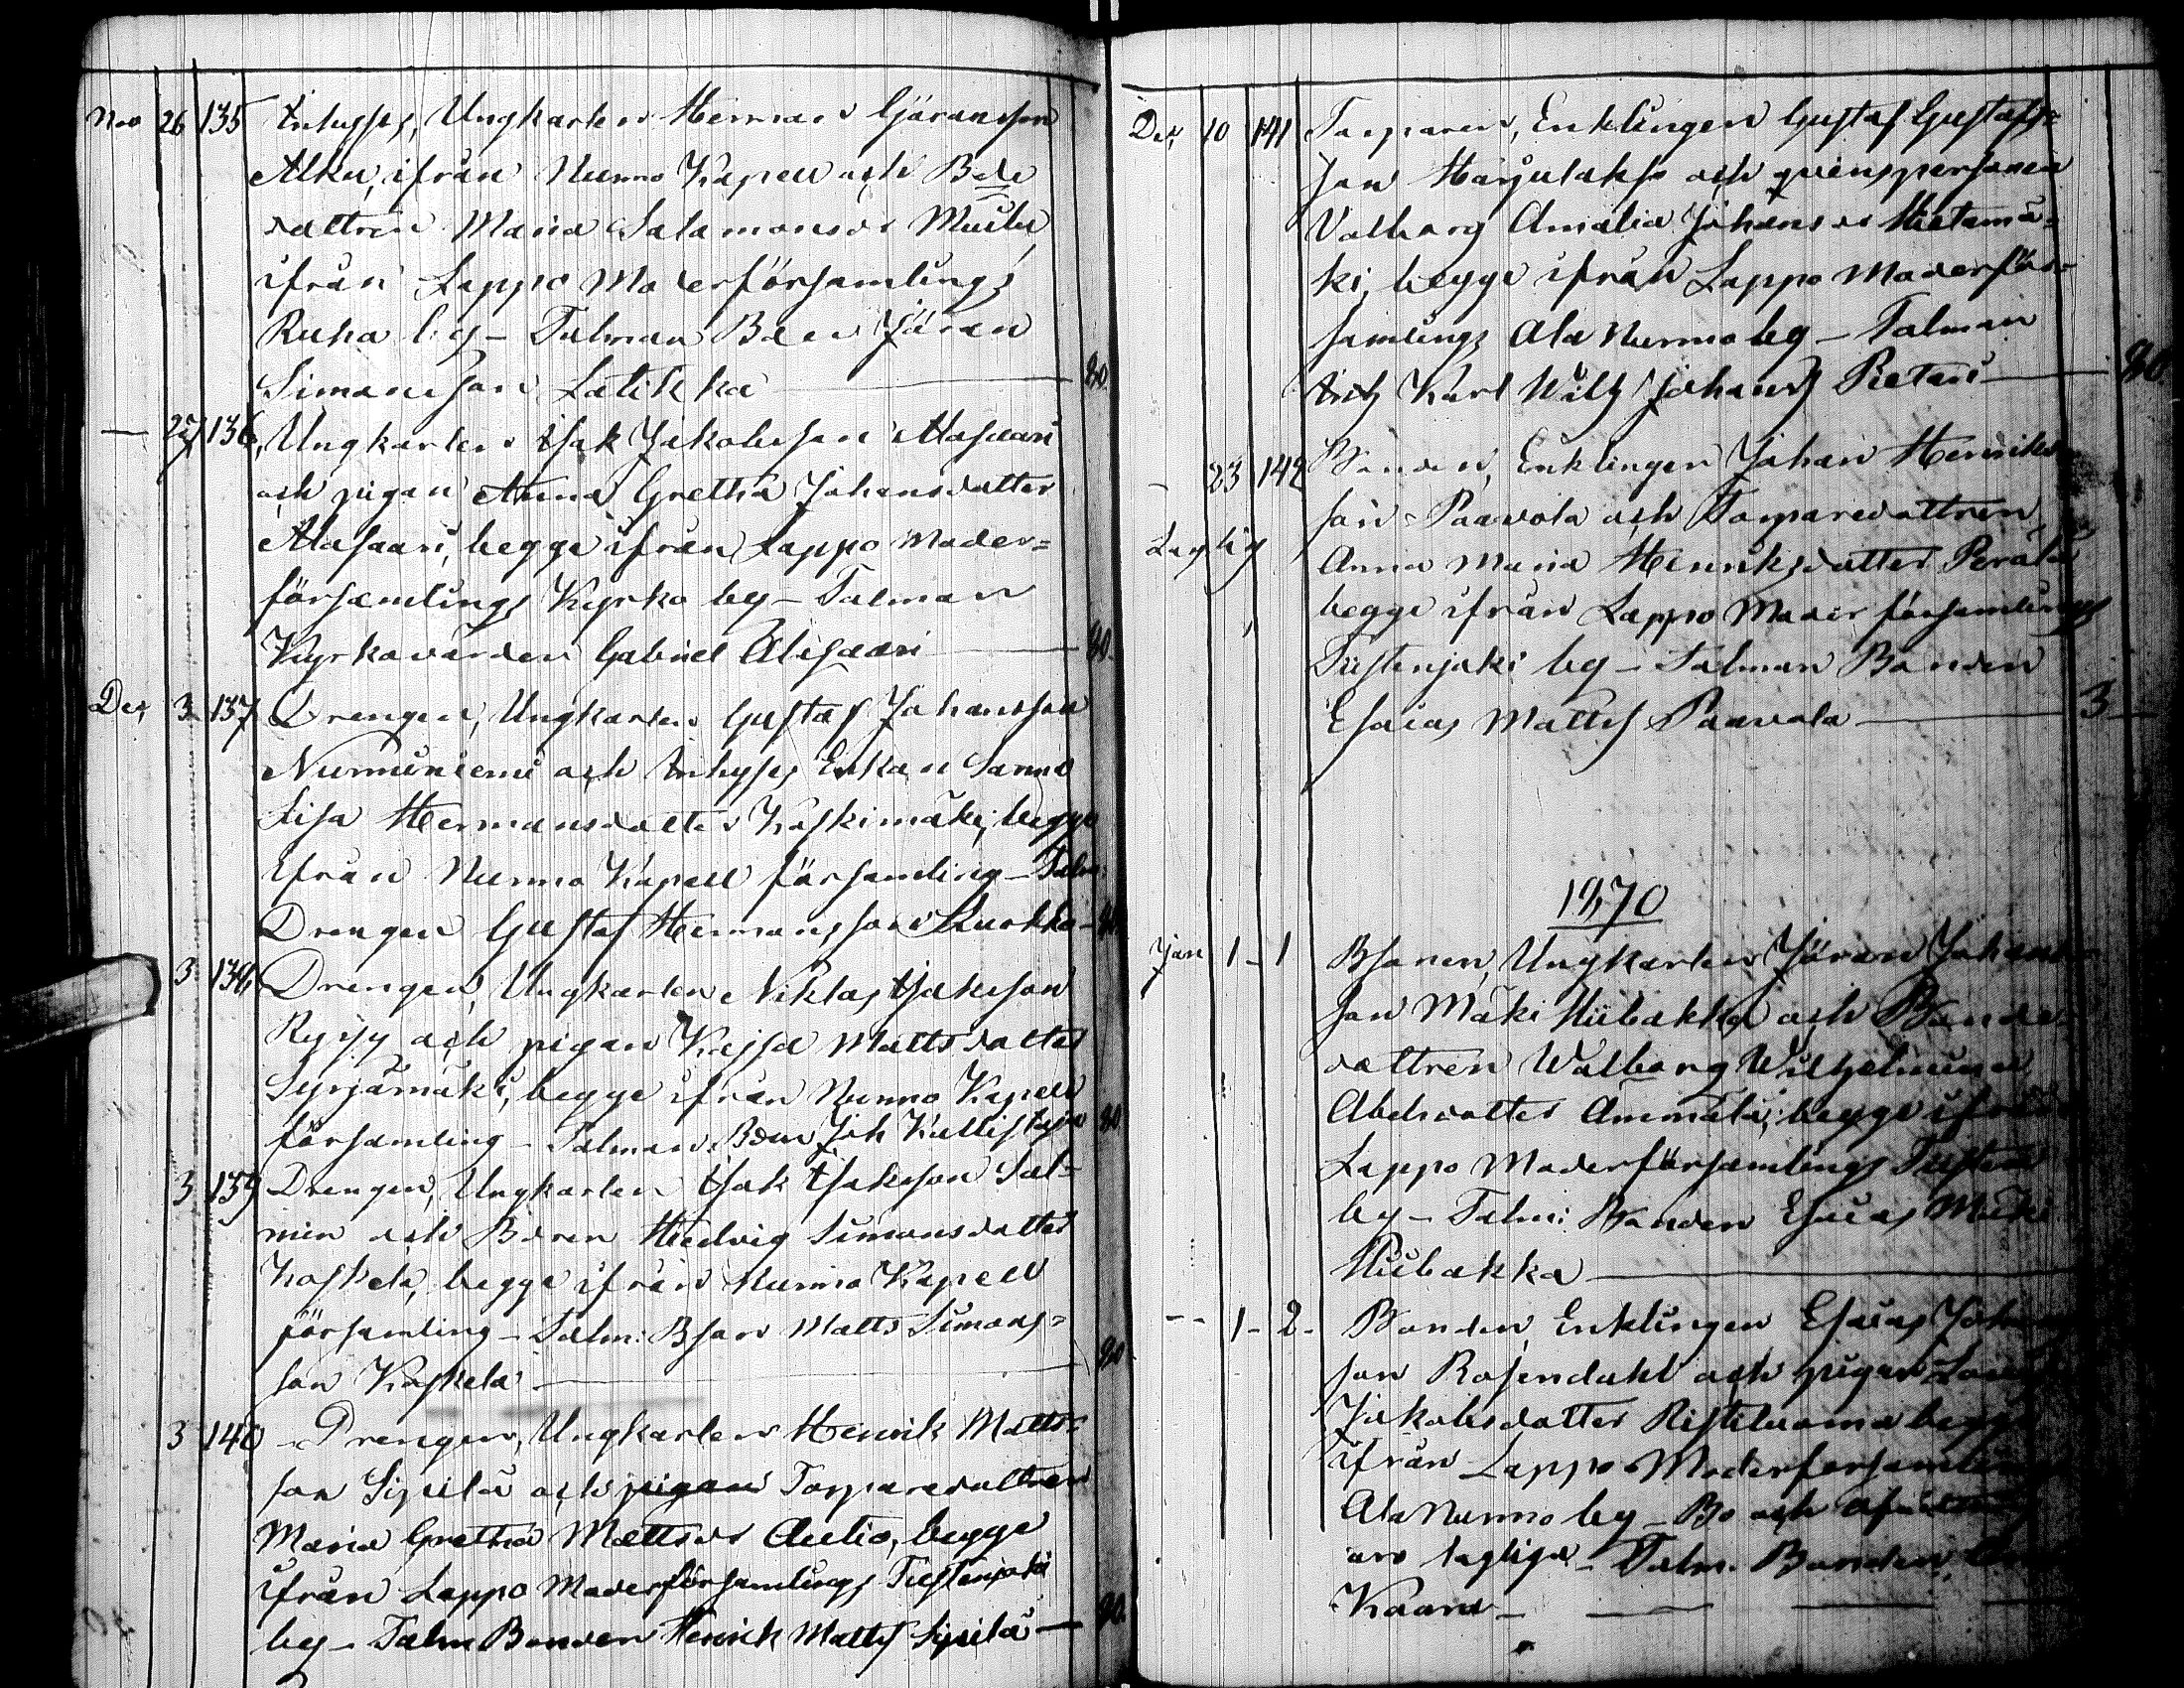 Nov 26 135 Inhyses, Ungkarlen Herman Göransson
Alku, ifrån Nurmo Kapell och Bde
dottren Maria Salamonsdr Muilu
ifrån Lappo Moderförsamlings
Ruha by – Talman Bden Jöran
Simonsson Latikka — 80.
— 27 136. Ungkarlen Isak Jakobsson Alasaari
och pigan Anna Gretha Johansdotter
Alasaari, begge ifrån Lappo Moder=
församlings Kyrko by – Talman
Kyrkovärden Gabriel Alasaari — 80.
Dec 3 137 Drengen, Ungkarlen Gustaf Johansson
Nurminiemi och Inhyses Enkan Sanna
Lisa Hermansdotter Koskimäki, begge
ifrån Nurmo Kapell församling – Talm:
Drengen Gustaf Hermansson Kuokka – 80
3 138 Drengen, Ungkarlen Niklas Isaksson
Ryssy och pigan Kajsa Mattsdotter
Syrjämäki, begge ifrån Nurmo Kapell
församling – Talman Bden Joh Kallistaja 80
3 139 Drengen, Ungkarlen Isak Isaksson Sal=
min och Bdren Hedvig Simonsdotter
Koskela, begge ifrån Nurmo Kapell
församling – Talm: Bson Matts Simons=
son Koskela — 80
3 140 – Drengen, Ungkarlen Henrik Matts=
son Sipilä och pigan Torparedottren
Maria Gretha Mattsdr Autio, begge
ifrån Lappo Moderförsamlings Tiistenjoki
by – Talm Bonden Henrik Matts Sipilä — 80.
Dec 10 141 Torparen, Enklingen Gustaf Gustafs=
son Harjulakso och qvinspersonen
Valborg Amalia Johansdr Hietamä=
ki, begge ifrån Lappo Moderför=
samlings Ala Nurmo by – Talman
Karl Wilh Johans Pietari — 80
– 23 142 Bonden, Enklingen Johan Henriks
son Paavola och Torparedottren
Laglig
Anna Maria Henriksdotter Perälä
begge ifrån Lappo Moder församlings
Tiistenjoki by – Talman Bonden
Esaias Matts Paavola — 3 –
1870
Jan 1 – 1 Bsonen, Ungkarlen Jöran Johans
son Mäki Hiibakka och Bonde
dottren Walborg Wilhelmina
Abelsdotter Ammälä, begge ifrån
Lappo Moderförsamlings
by – Talm: Bonden Esaias Mäki
Hiibakka —
– – 1 – 2 – Bonden Enklingen Esaias
son Rosendahl och pigan
Jakobsdotter Ristiluoma begge
ifrån Lappo Moderförsamlings
Ala Nurmo by – Bo och
are lagliga – Talm. Bonden
Kaara – — — —